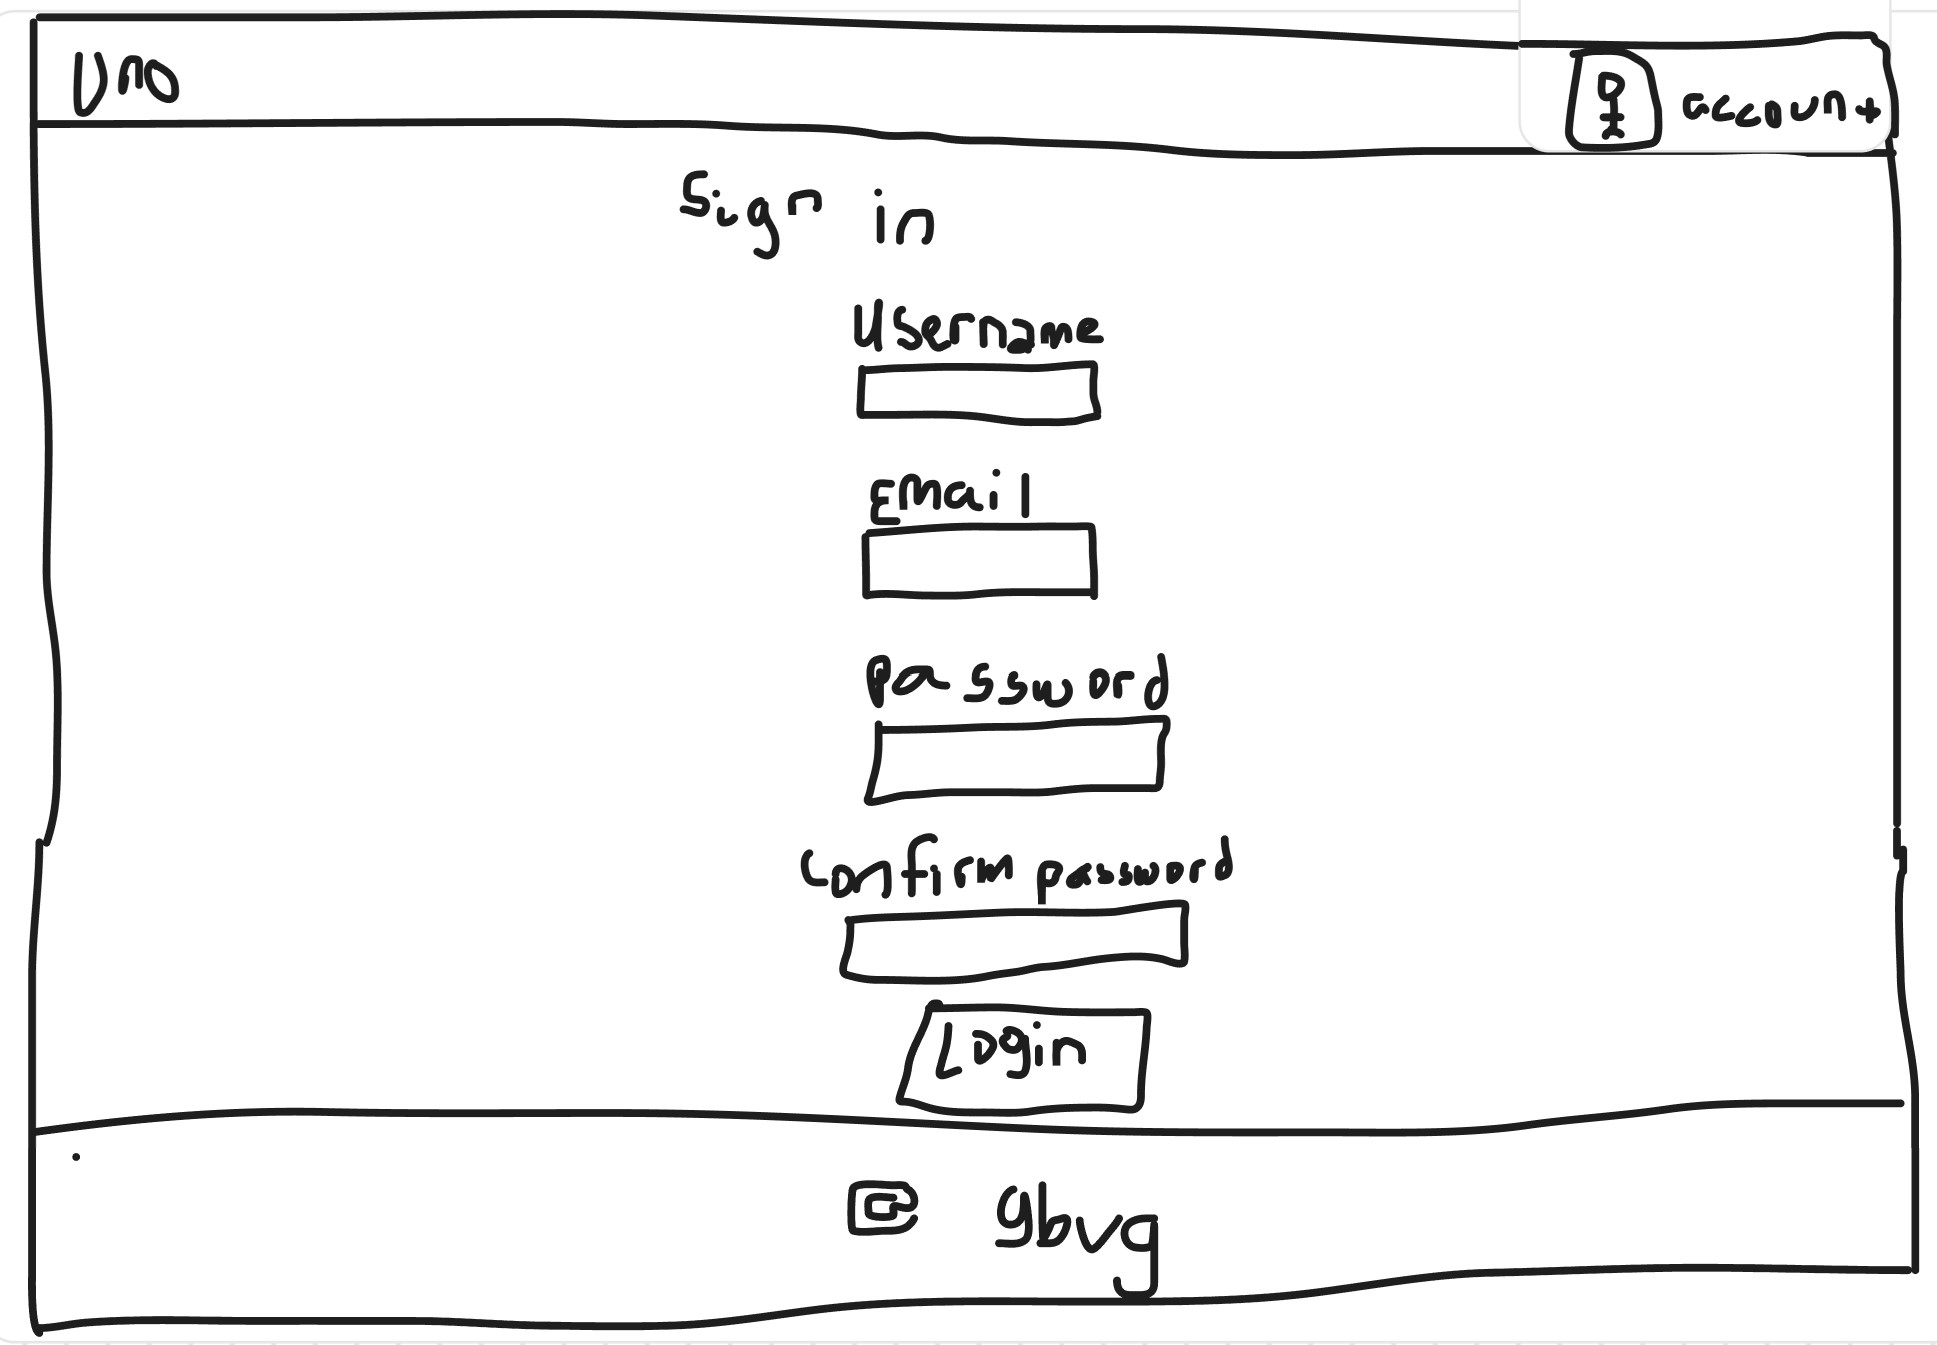 Uno
account
Sign in
Username
Email
password
confirm password
Login
@ gbvg